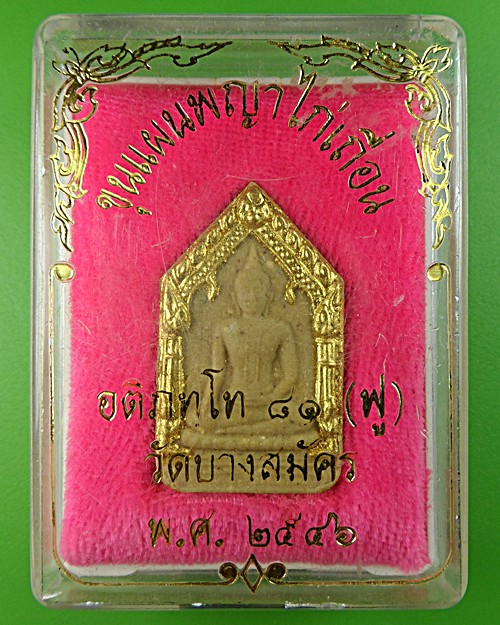 ขุนแผนพญาไก่เถื่อน
อติภทฺโท ๘๑ (ฟู)
วัดบางสมัคร
พ.ศ. ๒๕๔๖